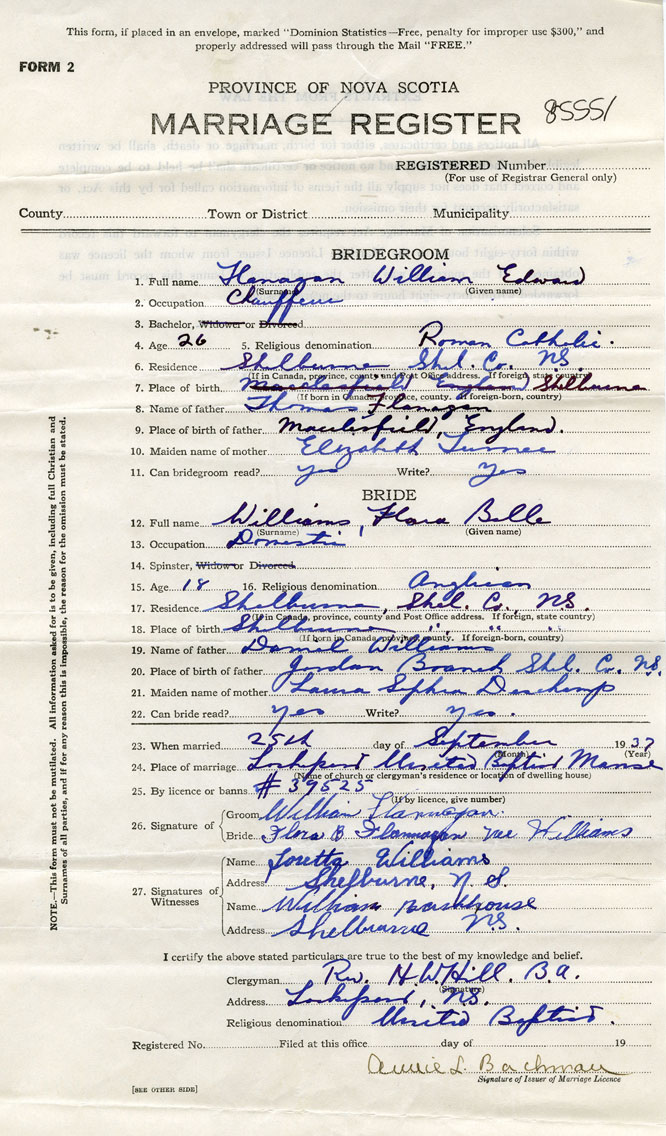 This form, if placed in an envelope, marked "Dominion Statistics—Free, penalty for improper use $300," and
properly addressed will pass through the Mail "FREE."
FORM 2
PROVINCE OF NOVA SCOTIA
MARRIAGE REGISTER 85551
REGISTERED Number
(For use of Registrar General only)
County Town or District Municipality
BRIDEGROOM
1. Full name Flanagan William Edward
(Surname) (Given name)
2. Occupation Chauffeur
3. Bachelor, Widower or Divorced
4. Age 26 5. Religious denomination Roman Catholic.
6. Residence Shelburne Shel. Co. NS
(If in Canada, province, county and Post Office address. If foreign, state country)
7. Place of birth Macclesfield England Shelburne
(If born in Canada, province, county. If foreign-born, country)
8. Name of father Thomas Flanagan
9. Place of birth of father Macclesfield, England.
10. Maiden name of mother Elizabeth Turner
11. Can bridegroom read? yes Write? Yes
BRIDE
12. Full name Williams, Flora Belle
(Surname) (Given name)
13. Occupation Domestic
14. Spinster, Widow or Divorced
15. Age 18 16. Religious denomination Anglican
17. Residence Shelburne, Shel. Co. N.S.
(If in Canada, province, county and Post Office address. If foreign, state country)
18. Place of birth Shelburne " " "
(If born in Canada, province, county. If foreign-born, country)
19. Name of father Daniel Williams
20. Place of father Jordan Branch Shel. Co. N.S.
21. Maiden name of mother Laura Sophia Deschamp
22. Can bride read? yes Write? yes.
23. When married 25th day of September 1937
(Month) (Year)
24. Place of marriage Lockeport United Baptist Manse
(Name of church or clergyman's residence or location of dwelling house)
25. By licence or banns # 39525
(If by licence, give number)
26. Signature of Groom William Flannagan
Bride Flora B Flannagan nee Williams
27. Signatures of Witnesses
Name Loretta Williams
Address Shelburne, N.S.
Name William
Address Shelburne NS.
I certify the above stated particulars are true to the best of my knowledge and belief.
Clergyman Rev. H.W. Hill. B.A.
(Signature)
Address Lockeport, NS.
Religious denomination United Baptist.
Registered No. Filed at this office day of 19
Annie L. Bachman
Signature of Issuer of Marriage Licence
[SEE OTHER SIDE]
NOTE.—This form must not be mutilated. All information asked for is to be given, including full Christian and
Surnames of all parties, and if for any reason this is impossible, the reason for the omission must be stated.